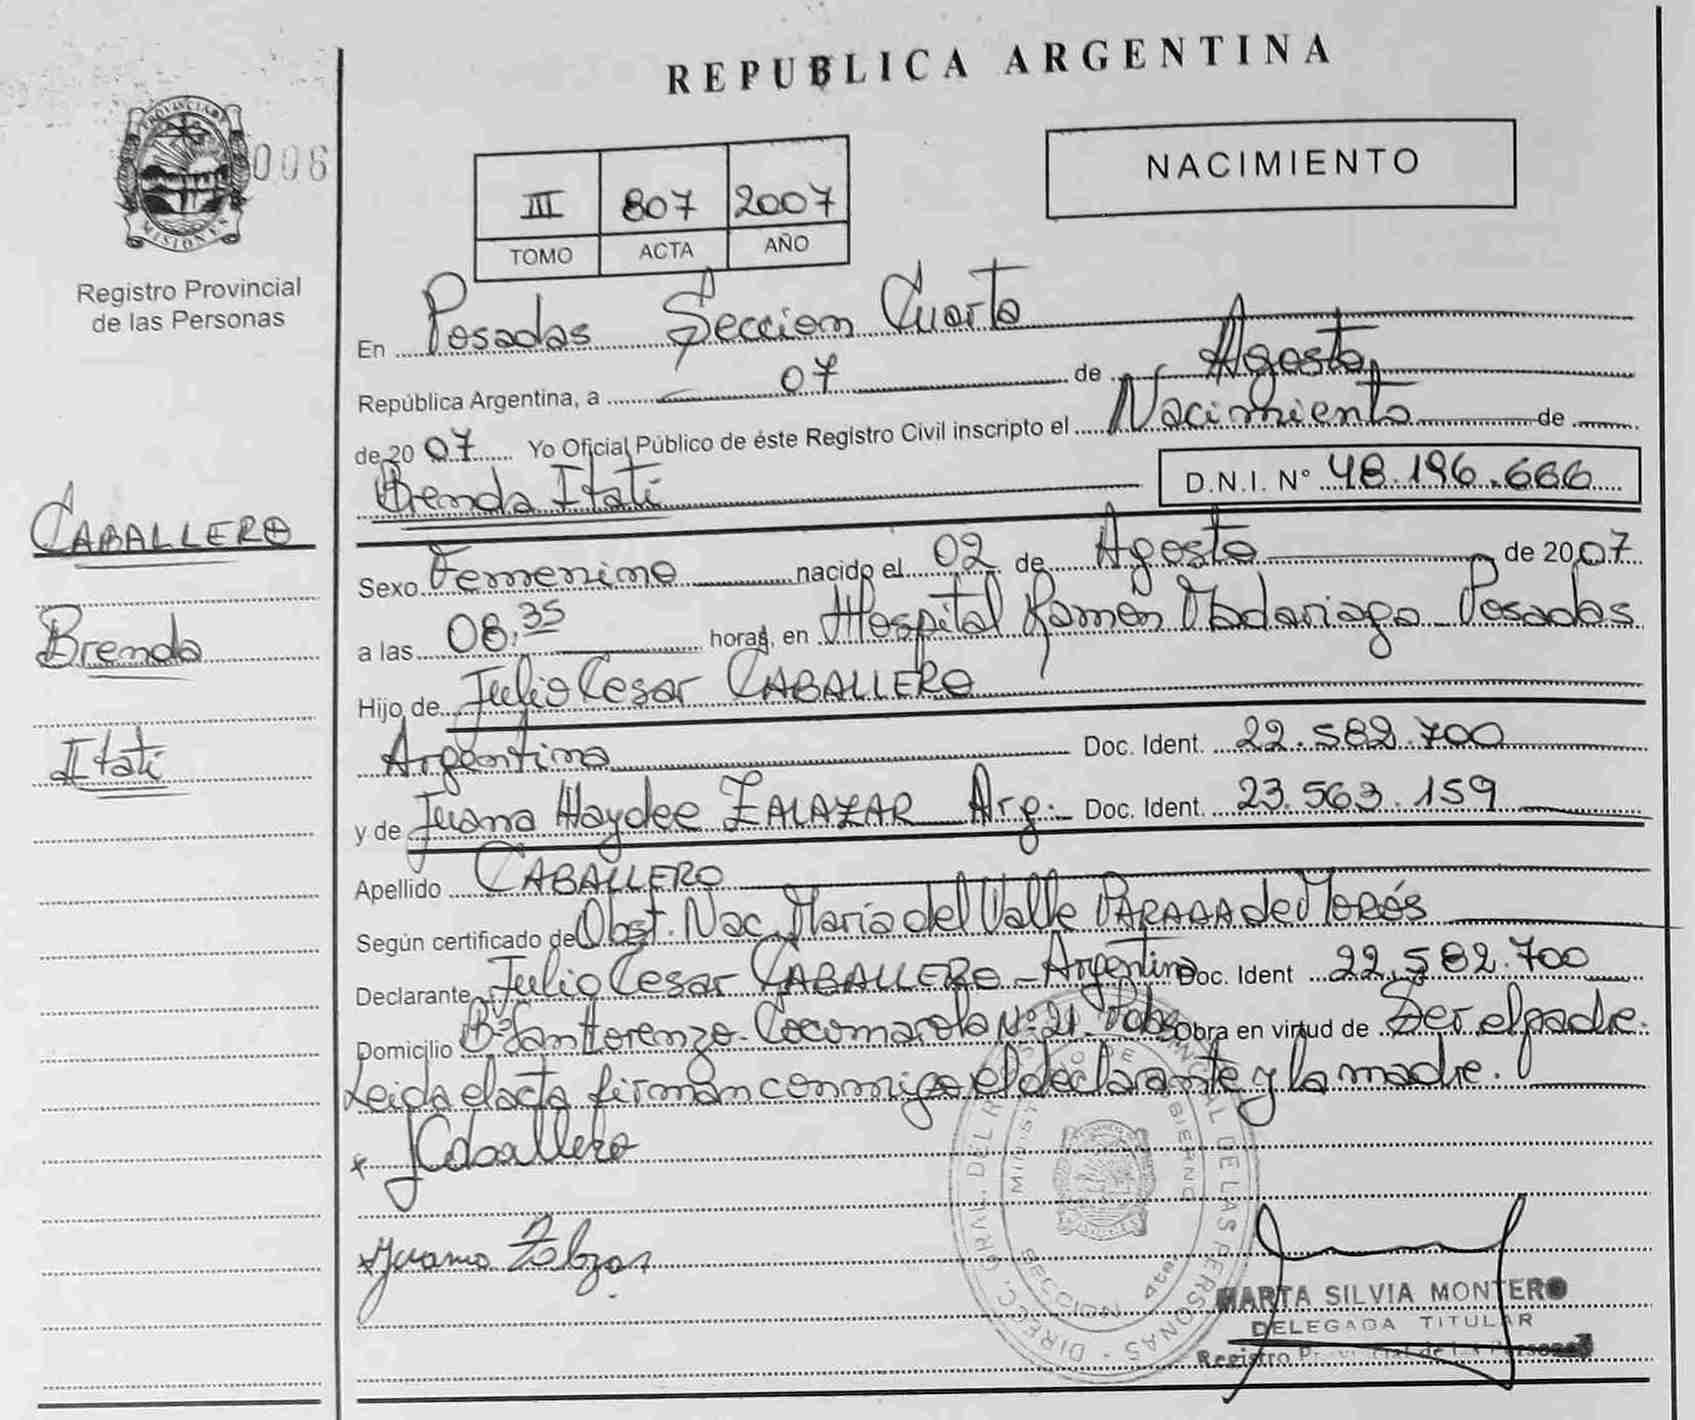 REPUBLICA ARGENTINA
PROVINCIA DE
MISIONES
006
Registro Provincial
de las Personas
III 807 2007
TOMO ACTA AÑO
NACIMIENTO
En Posadas Seccion Cuarta
República Argentina, a 07 de Agosto
de 2007 Yo Oficial Público de éste Registro Civil inscripto el Nacimiento de
Brenda Itatí D.N.I. N° 48.196.666
CABALLERO
Brenda
Itatí
Sexo Femenino nacido el 02 de Agosto de 2007
a las 08:35 horas, en Hospital Ramón Madariaga Posadas
Hijo de Julio Cesar CABALLERO
Argentino Doc. Ident. 22.582.700
y de Juana Haydee ZALAZAR Arg. Doc. Ident. 23.563.159
Apellido CABALLERO
Según certificado de Obst. Nac. María del Valle PARADA de Morés
Declarante Julio Cesar CABALLERO - Argentino Doc. Ident 22.582.700
Domicilio B° San Lorenzo - Cocomarola N° 21. Pdas Obra en virtud de Ser el padre.
Leida el acta firman conmigo el declarante y la madre.
x JCaballero
x Juana Zalazar
MARTA SILVIA MONTERO
DELEGADA TITULAR
Registro Provincial de las Personas